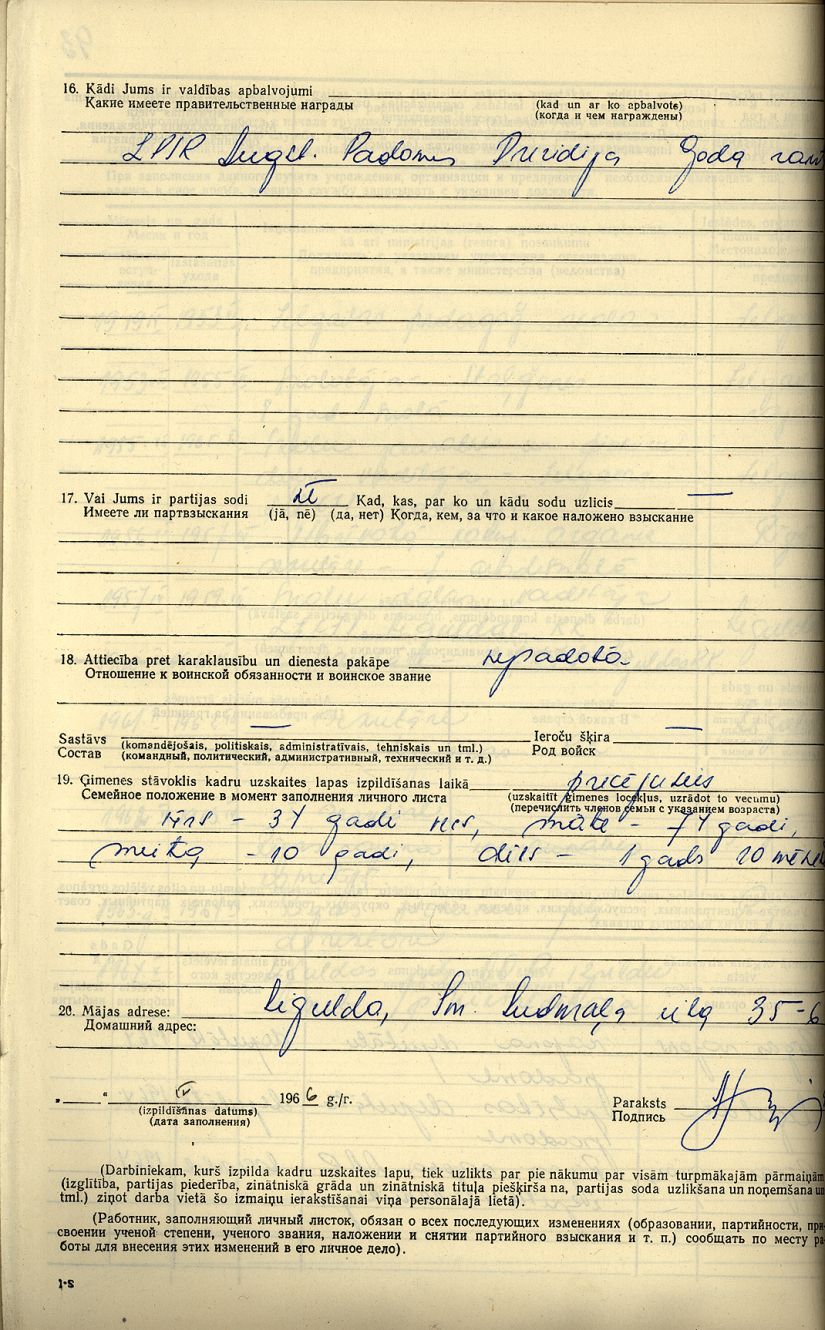 16. Kādi Jums ir valdības apbalvojumi
Какие имеете правительственные награды
(kad un ar ko apbalvots)
(когда и чем награждены)
LPSR Augst. Padomes Prezidija Goda rakst
17. Vai Jums ir partijas sodi nē Kad, kas, par ko un kādu sodu uzlicis —
Имеете ли партвзыскания (jā, nē) (да, нет) Когда, кем, за что и какое наложено взыскание
18. Attiecība pret karaklausību un dienesta pakāpe nepadotā
Отношение к воинской обязанности и воинское звание
Sastāvs — Ieroču šķira —
Состав (komandējošais, politiskais, administratīvais, tehniskais un tml.) Род войск
(командный, политический, административный, технический и т. д.)
19. Ģimenes stāvoklis kadru uzskaites lapas izpildīšanas laikā precējusies
Семейное положение в момент заполнения личного листа (uzskaitīt ģimenes locekļus, uzrādot to vecumu)
(перечислить членов семьи с указанием возраста)
vīrs - 34 gadi vecs, māte - 74 gadi,
meita - 10 gadi, dēls - 1 gads 10 mēneš
20. Mājas adrese: Sigulda, Sudmaļa iela 35-6
Домашний адрес:
„ “ IV 1966 g./г.
(izpildīšanas datums)
(дата заполнения)
Paraksts
Подпись
(Darbiniekam, kurš izpilda kadru uzskaites lapu, tiek uzlikts par pie nākumu par visām turpmākajām pārmaiņām
(izglītība, partijas piederība, zinātniskā grāda un zinātniskā titula piešķirša na, partijas soda uzlikšana un noņemšana un
tml.) ziņot darba vietā šo izmaiņu ierakstīšanai viņa personālajā lietā).
(Работник, заполняющий личный листок, обязан о всех последующих изменениях (образовании, партийности, при
своении ученой степени, ученого звания, наложении и снятии партийного взыскания и т. п.) сообщать по месту ра
боты для внесения этих изменений в его личное дело).